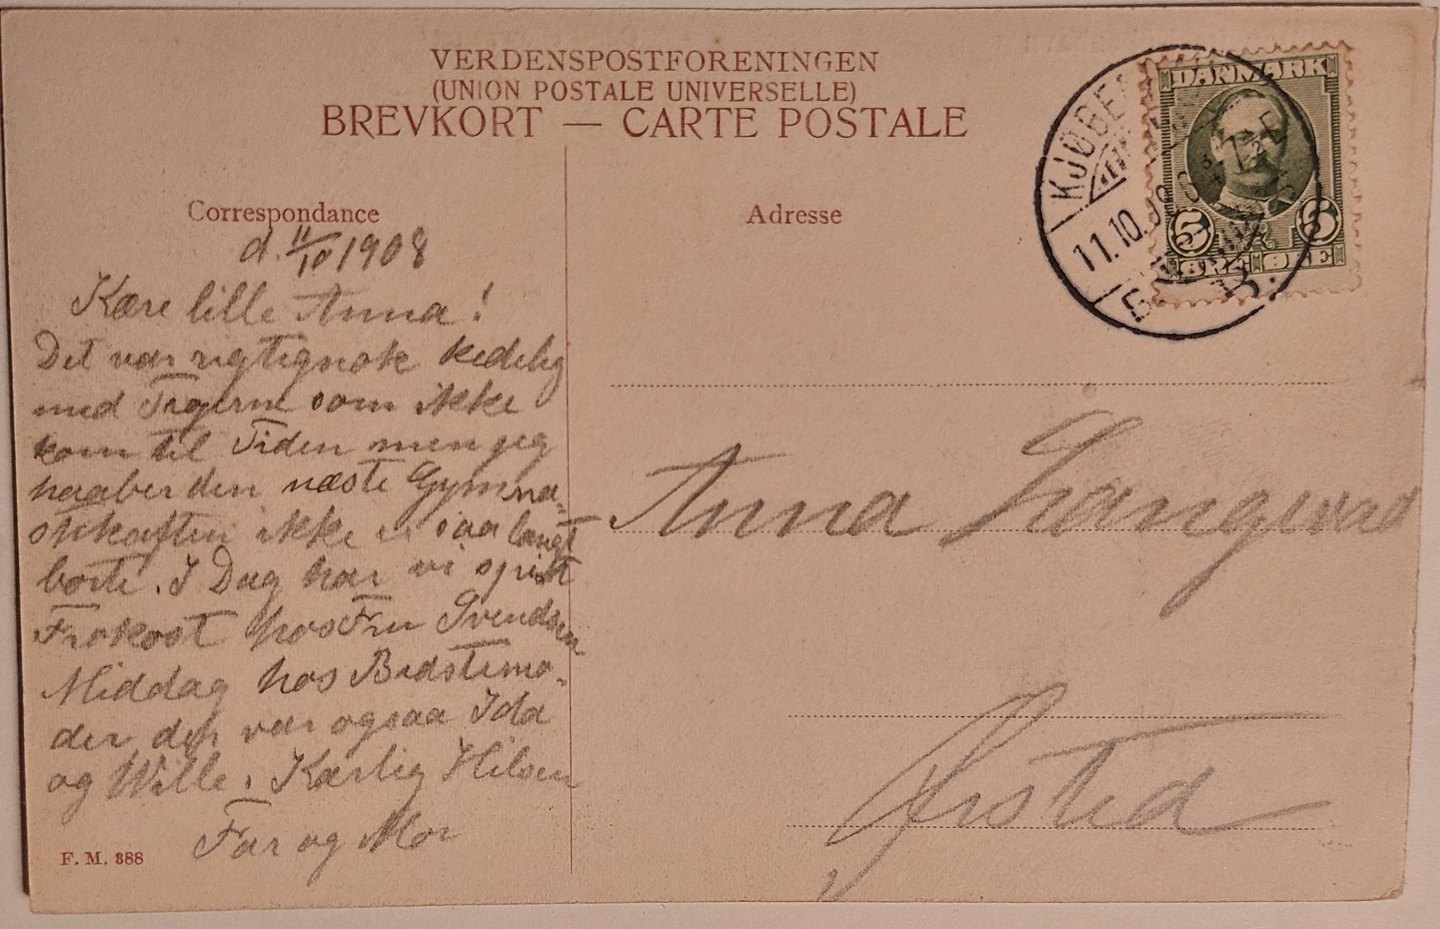 VERDENSPOSTFORENINGEN
(UNION POSTALE UNIVERSELLE)
BREVKORT — CARTE POSTALE
Correspondance
d. 11/10 1908
Kære lille Anna!
Det var rigtignok kedelig
med Tøgerne som ikke
kom til Tiden men jeg
haaber den næste Gymna-
stikaften ikke er saa langt
borte. I Dag har vi spist
Frokost hos Fru Svendsen
Middag hos Bedstemo-
der der var ogsaa Ida
og Wille. Kærlig Hilsen
Far og Mor
F. M. 388
Adresse
Anna Langvad
Ørsted
DANMARK
5 5
ØRE ØRE
KJØBE
11.10.08
B.